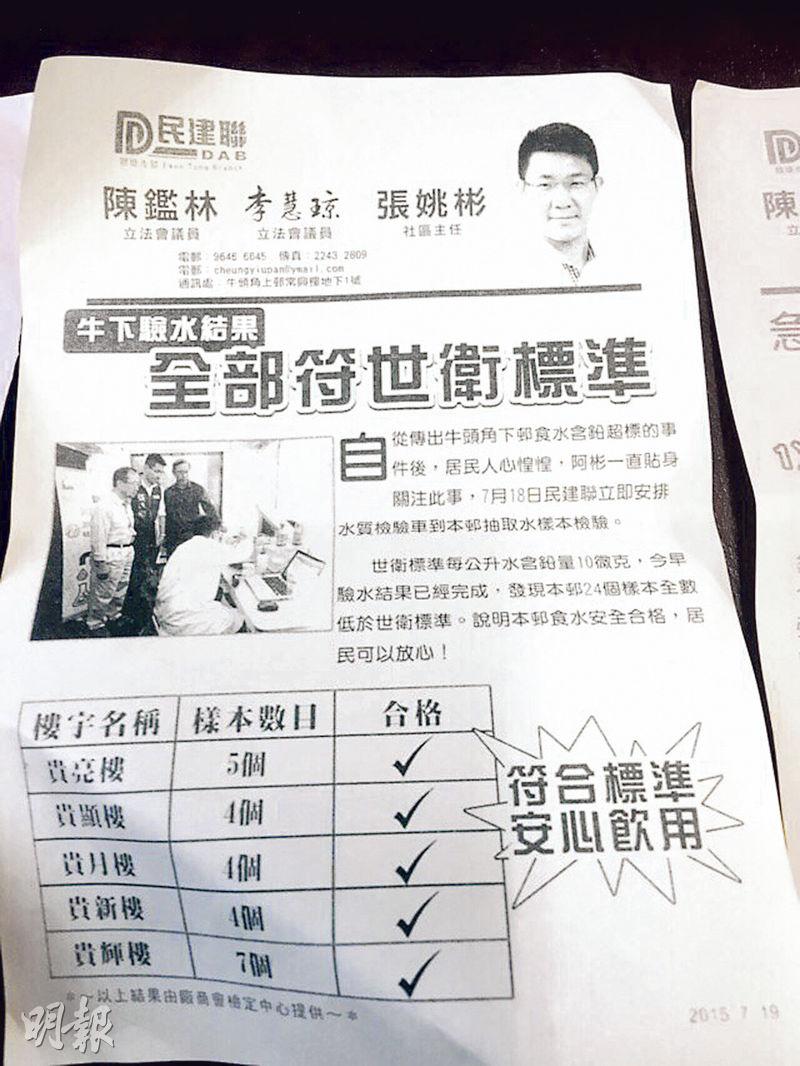 民建聯
DAB
觀塘支部 Kwun Tong Branch
陳鑑林 李慧琼 張姚彬
立法會議員 立法會議員 社區主任
電郵：9646 6645 傳真：2243 2809
電郵：cheungyiupan@ymail.com
通訊處：牛頭角上邨常興樓地下1號
牛下驗水結果
全部符世衛標準
自從傳出牛頭角下邨食水含鉛超標的事
件後，居民人心惶惶，阿彬一直貼身
關注此事，7月18日民建聯立即安排
水質檢驗車到本邨抽取水樣本檢驗。
世衛標準每公升水含鉛量10微克，今早
驗水結果已經完成，發現本邨24個樣本全數
低於世衛標準。說明本邨食水安全合格，居
民可以放心！
樓宇名稱 樣本數目 合格
貴亮樓 5個 ✓
貴顯樓 4個 ✓
貴月樓 4個 ✓
貴新樓 4個 ✓
貴輝樓 7個 ✓
符合標準
安心飲用
*～以上結果由廠商會檢定中心提供～*
2015 7 19
明報
D
陳
立法
急